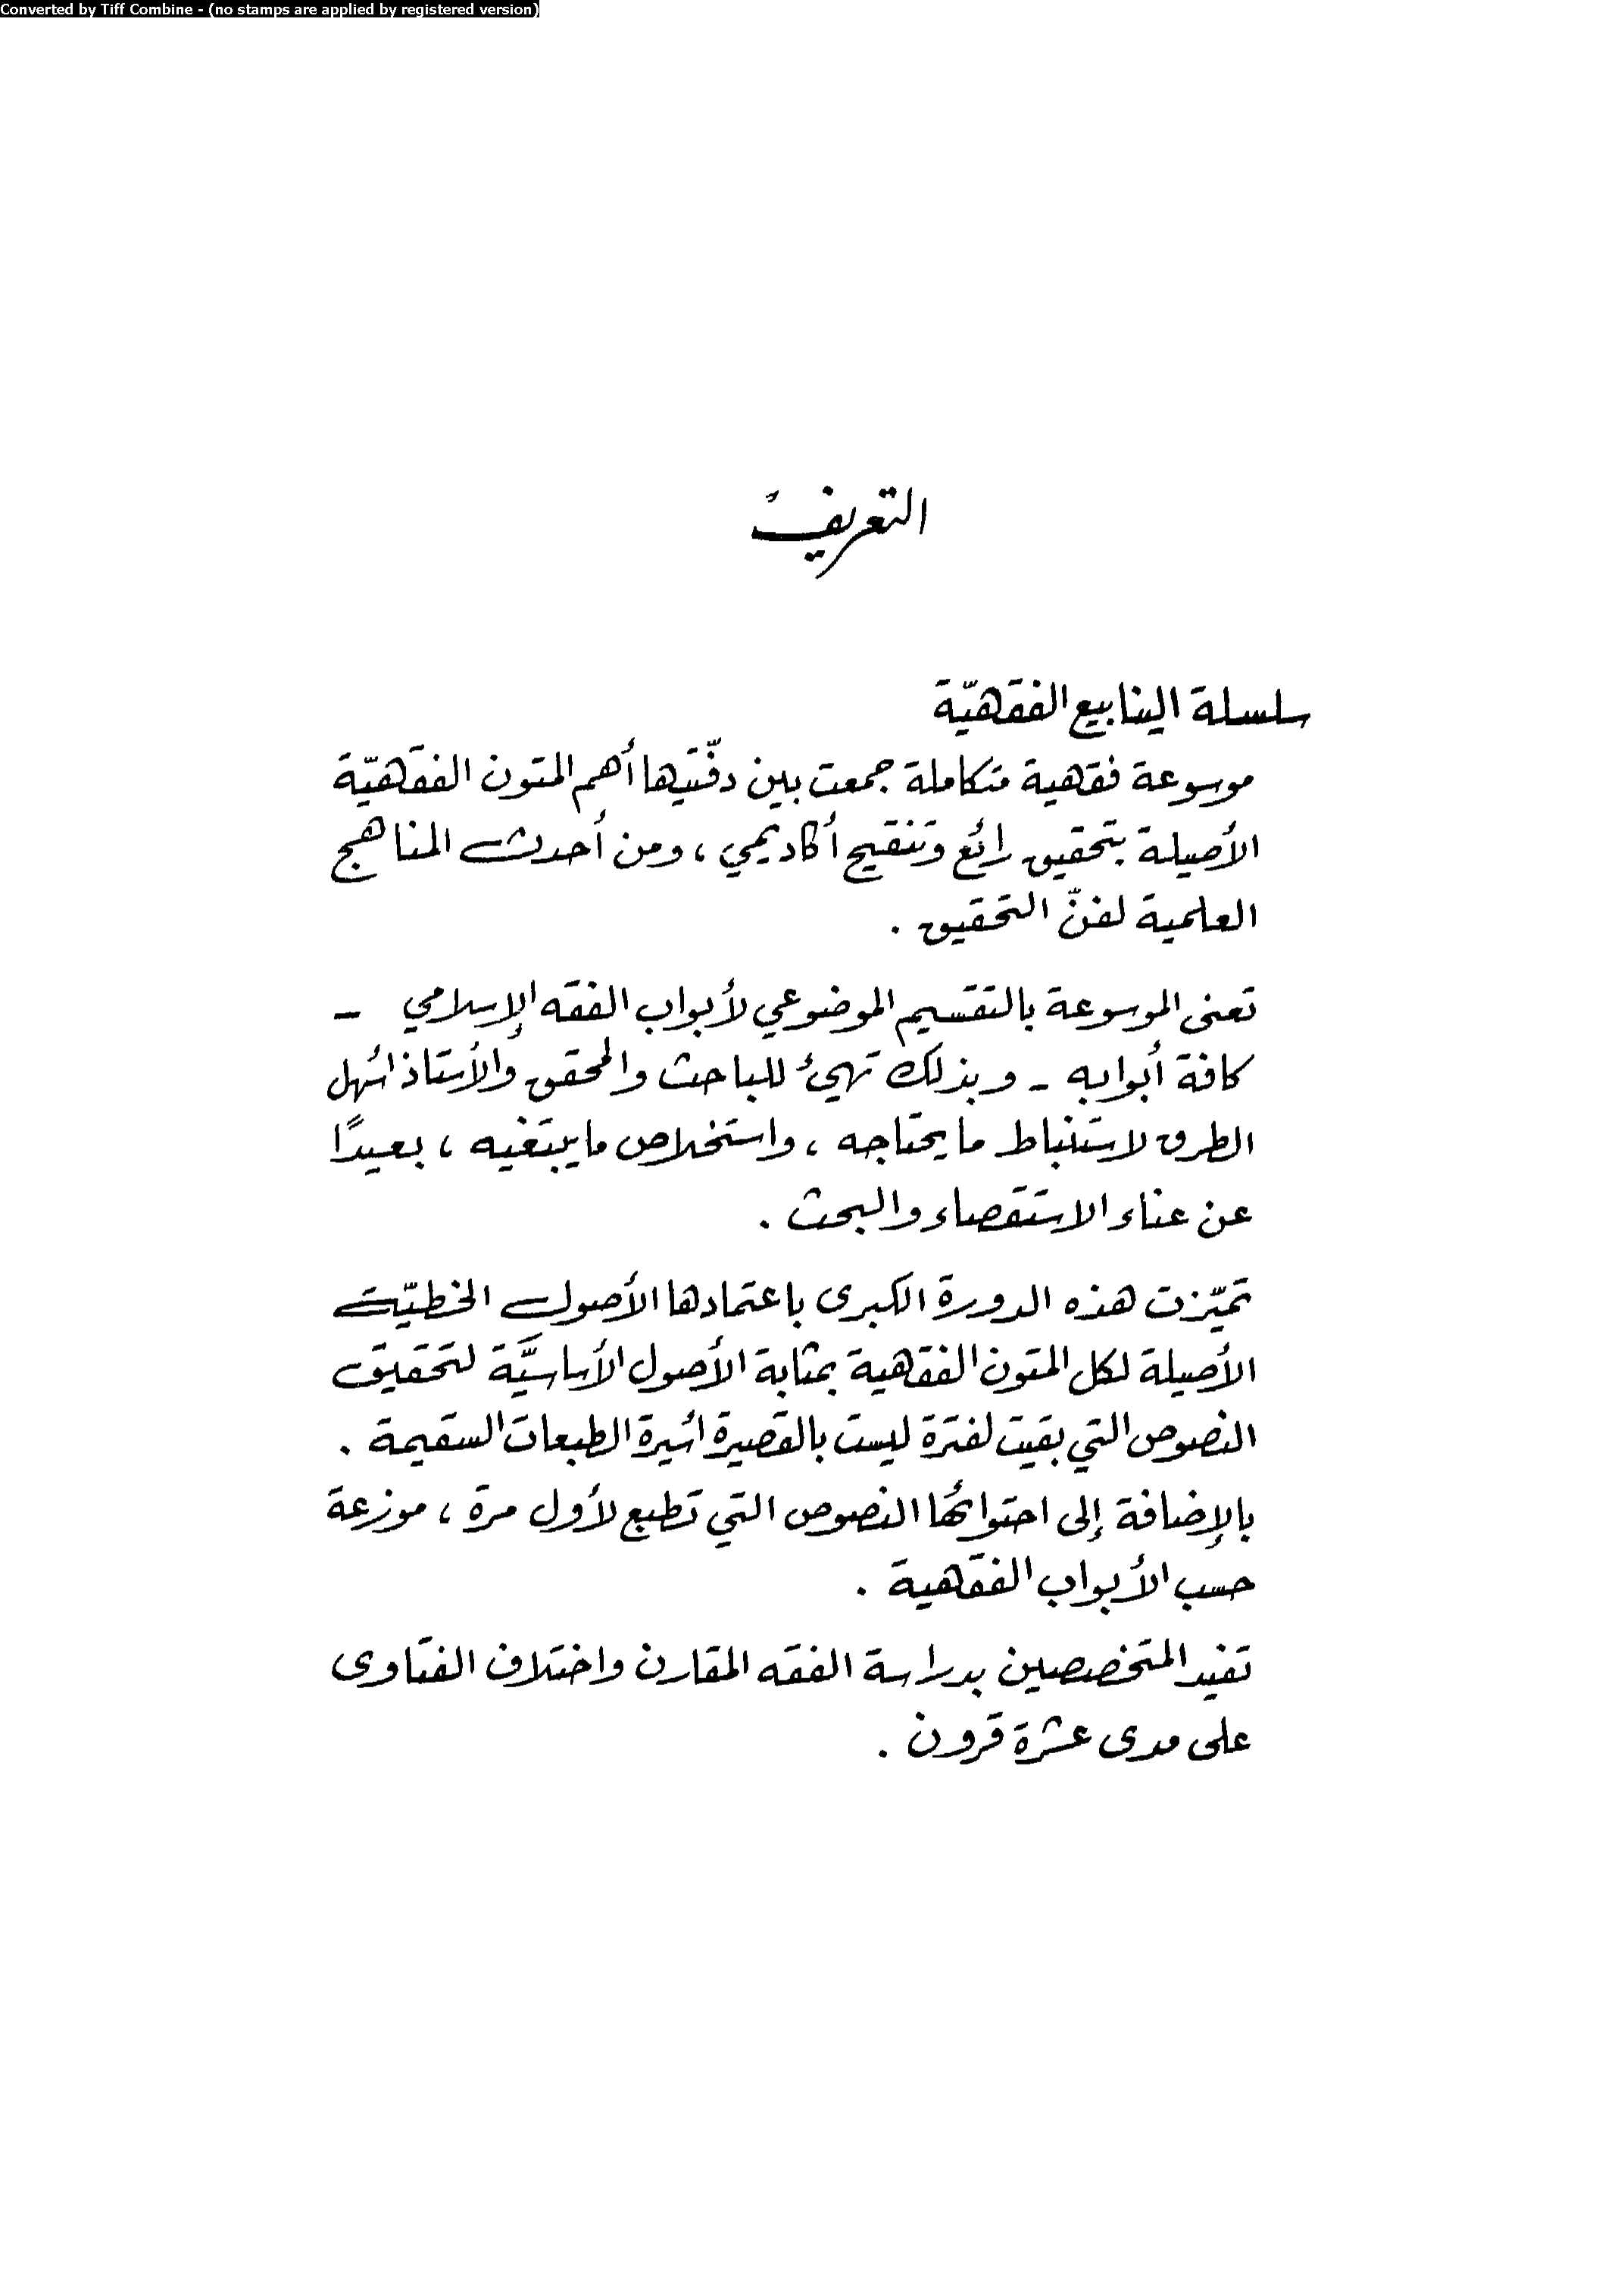 Converted by Tiff Combine - (no stamps are applied by registered version)
التعريفُ
سلسلة الينابيع الفقهيّة
موسوعة فقهية متكاملة جمعت بين دفّتيها أهم المتون الفقهيّة
الأصيلة بتحقيق رائع وتنقيح أكاديمي ، ومن أحدث المناهج
العلمية لفنّ التحقيق .
تعنى الموسوعة بالتقسيم الموضوعي لأبواب الفقه الإسلامي -
كافة أبوابه - وبذلك تهيئ للباحث والمحقق والأستاذ أسهل
الطرق لاستنباط ما يحتاجه ، واستخلاص ما يبتغيه ، بعيدًا
عن عناء الاستقصاء والبحث .
تميّزت هذه الدورة الكبرى باعتمادها الأصول الخطيّة
الأصيلة لكل المتون الفقهية بمثابة الأصول الأساسيَّة لتحقيق
النصوص التي بقيت لفترة ليست بالقصيرة أسيرة الطبعات السقيمة .
بالإضافة إلى احتوائها النصوص التي تطبع لأول مرة ، موزعة
حسب الأبواب الفقهية .
تفيد المتخصصين بدراسة الفقه المقارن واختلاف الفتاوى
على مدى عشرة قرون .